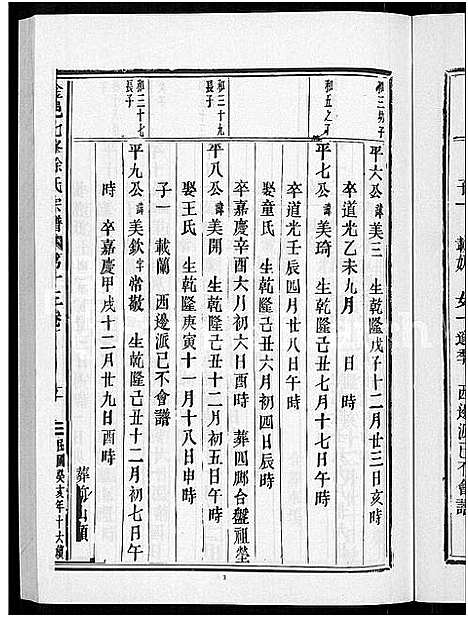 和三幼子
平六公 諱美三 生乾隆戊子十二月廿三日亥時
卒道光乙未九月 日 時
和五之子
平七公 諱美琦 生乾隆己丑七月十七日午時
卒道光壬辰四月廿八日午時
娶童氏 生乾隆己丑六月初六日辰時
卒嘉慶辛酉六月初六日酉時 葬四鄉合盤祖塋
和三十九長子
平八公 諱美開 生乾隆己丑十二月初五日午時
娶王氏 生乾隆庚寅十一月十八日申時
子一 載蘭 西邊派已不會譜
和三十七長子
平九公 諱美欽 字常敬 生乾隆己丑十二月初七日午
時 卒嘉慶甲戌十二月廿九日酉時
葬 山頭
徐氏宗譜 第十三卷
民國癸亥年十六續
子一 女一適李 西邊派已不會譜